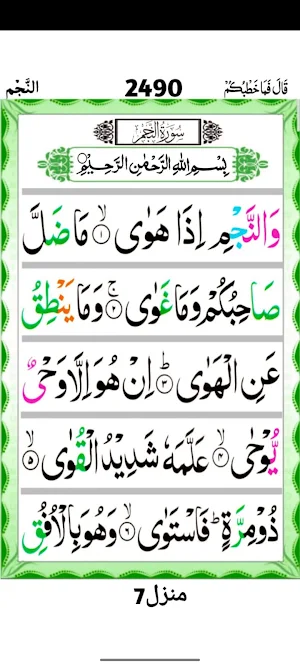 قَالَ فَمَا خَطْبُكُمْ 2490 النَّجْم
سُوْرَةُ النَّجْمِ
بِسْمِ اللّٰهِ الرَّحْمٰنِ الرَّحِيْمِ
وَالنَّجْمِ اِذَا هَوٰى ۙ﴿۱﴾ مَا ضَلَّ
صَاحِبُكُمْ وَمَا غَوٰى ۚ﴿۲﴾ وَمَا يَنْطِقُ
عَنِ الْهَوٰى ؕ﴿۳﴾ اِنْ هُوَ اِلَّا وَحْىٌ
يُّوْحٰى ۙ﴿۴﴾ عَلَّمَهٗ شَدِيْدُ الْقُوٰى ۙ﴿۵﴾
ذُوْ مِرَّةٍ ؕ فَاسْتَوٰى ۙ﴿۶﴾ وَهُوَ بِالْاُفُقِ
منزل 7